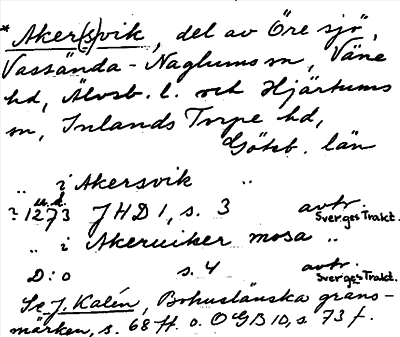 * Aker(s)vik, del av Öre sjö,
Vassända-Naglums sn, Väne
hd, Älvsb. l. och Hjärtums
sn, Inlands Torpe hd,
Göteb. län
„ i Akersvik „
? 1273 u.d. JHD 1, s. 3 avtr. Sverges Trakt.
„ i Akeruiker mosa „
D:o s. 4 avtr. Sverges Trakt.
Se J. Kalén, Bohuslänska gräns-
märken, s. 68 ff. o. OGB 10, s. 73 f.